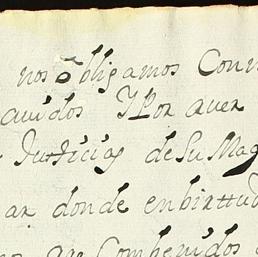 nos obligamos Conv
auidos Y Por aver
Justicias de Su Mag
ar donde enbirttud
que Combenidos